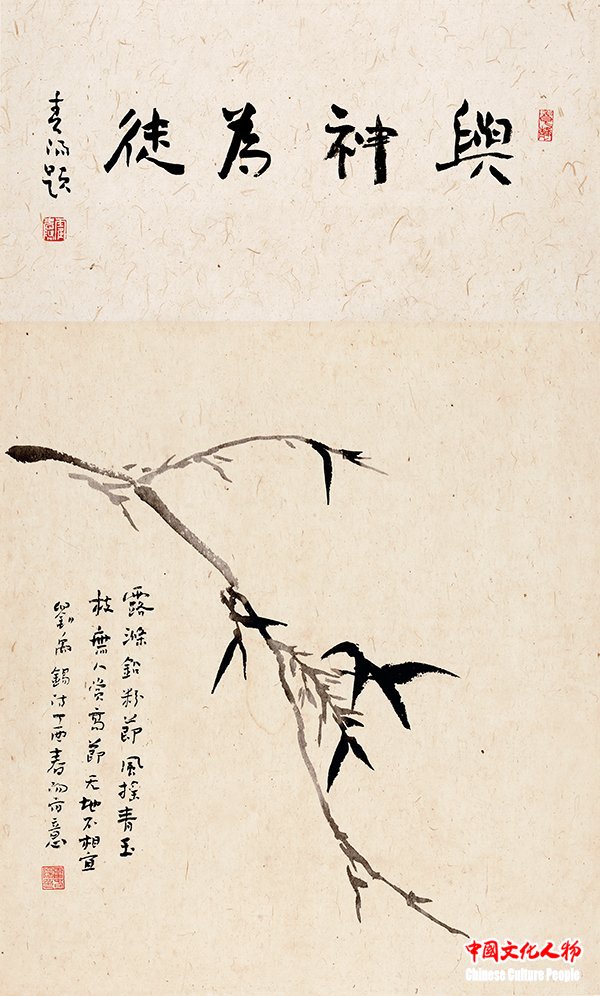 與神為徒
青 題
露滌鉛粉節風搖青玉
枝無人賞高節无地不相宜
劉禹錫詩丁酉春 方意
中國文化人物
Chinese Culture People